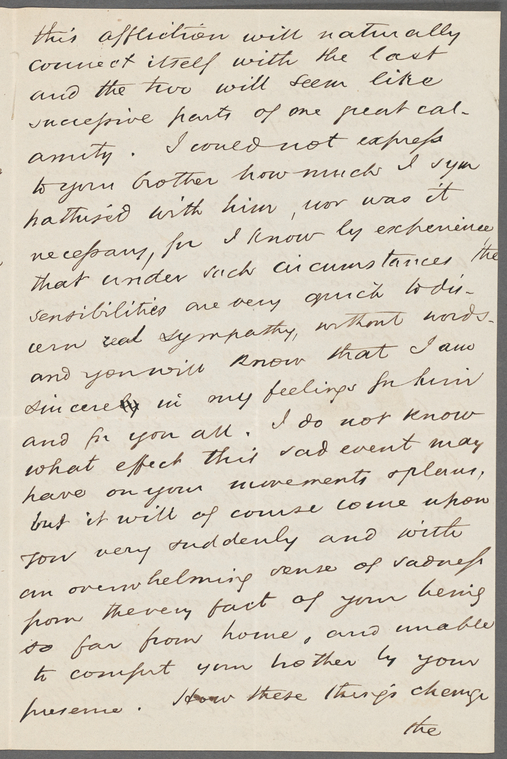 this affliction will naturally
connect itself with the last
and the two will seem like
successive parts of one great cal-
amity. I could not express
to your brother how much I sym
pathised with him, nor was it
necessary, for I know by experience
that under such circumstances the
sensibilities are very quick to dis-
cern real sympathy, without words-
and you will know that I am
sincere in my feelings for him
and for you all. I do not know
what effect this sad event may
have on your movements & plans,
but it will of course come upon
you very suddenly and with
an overwhelming sense of sadness
from the very fact of your being
so far from home, and unable
to comfort your mother by your
presence. How these things change
the